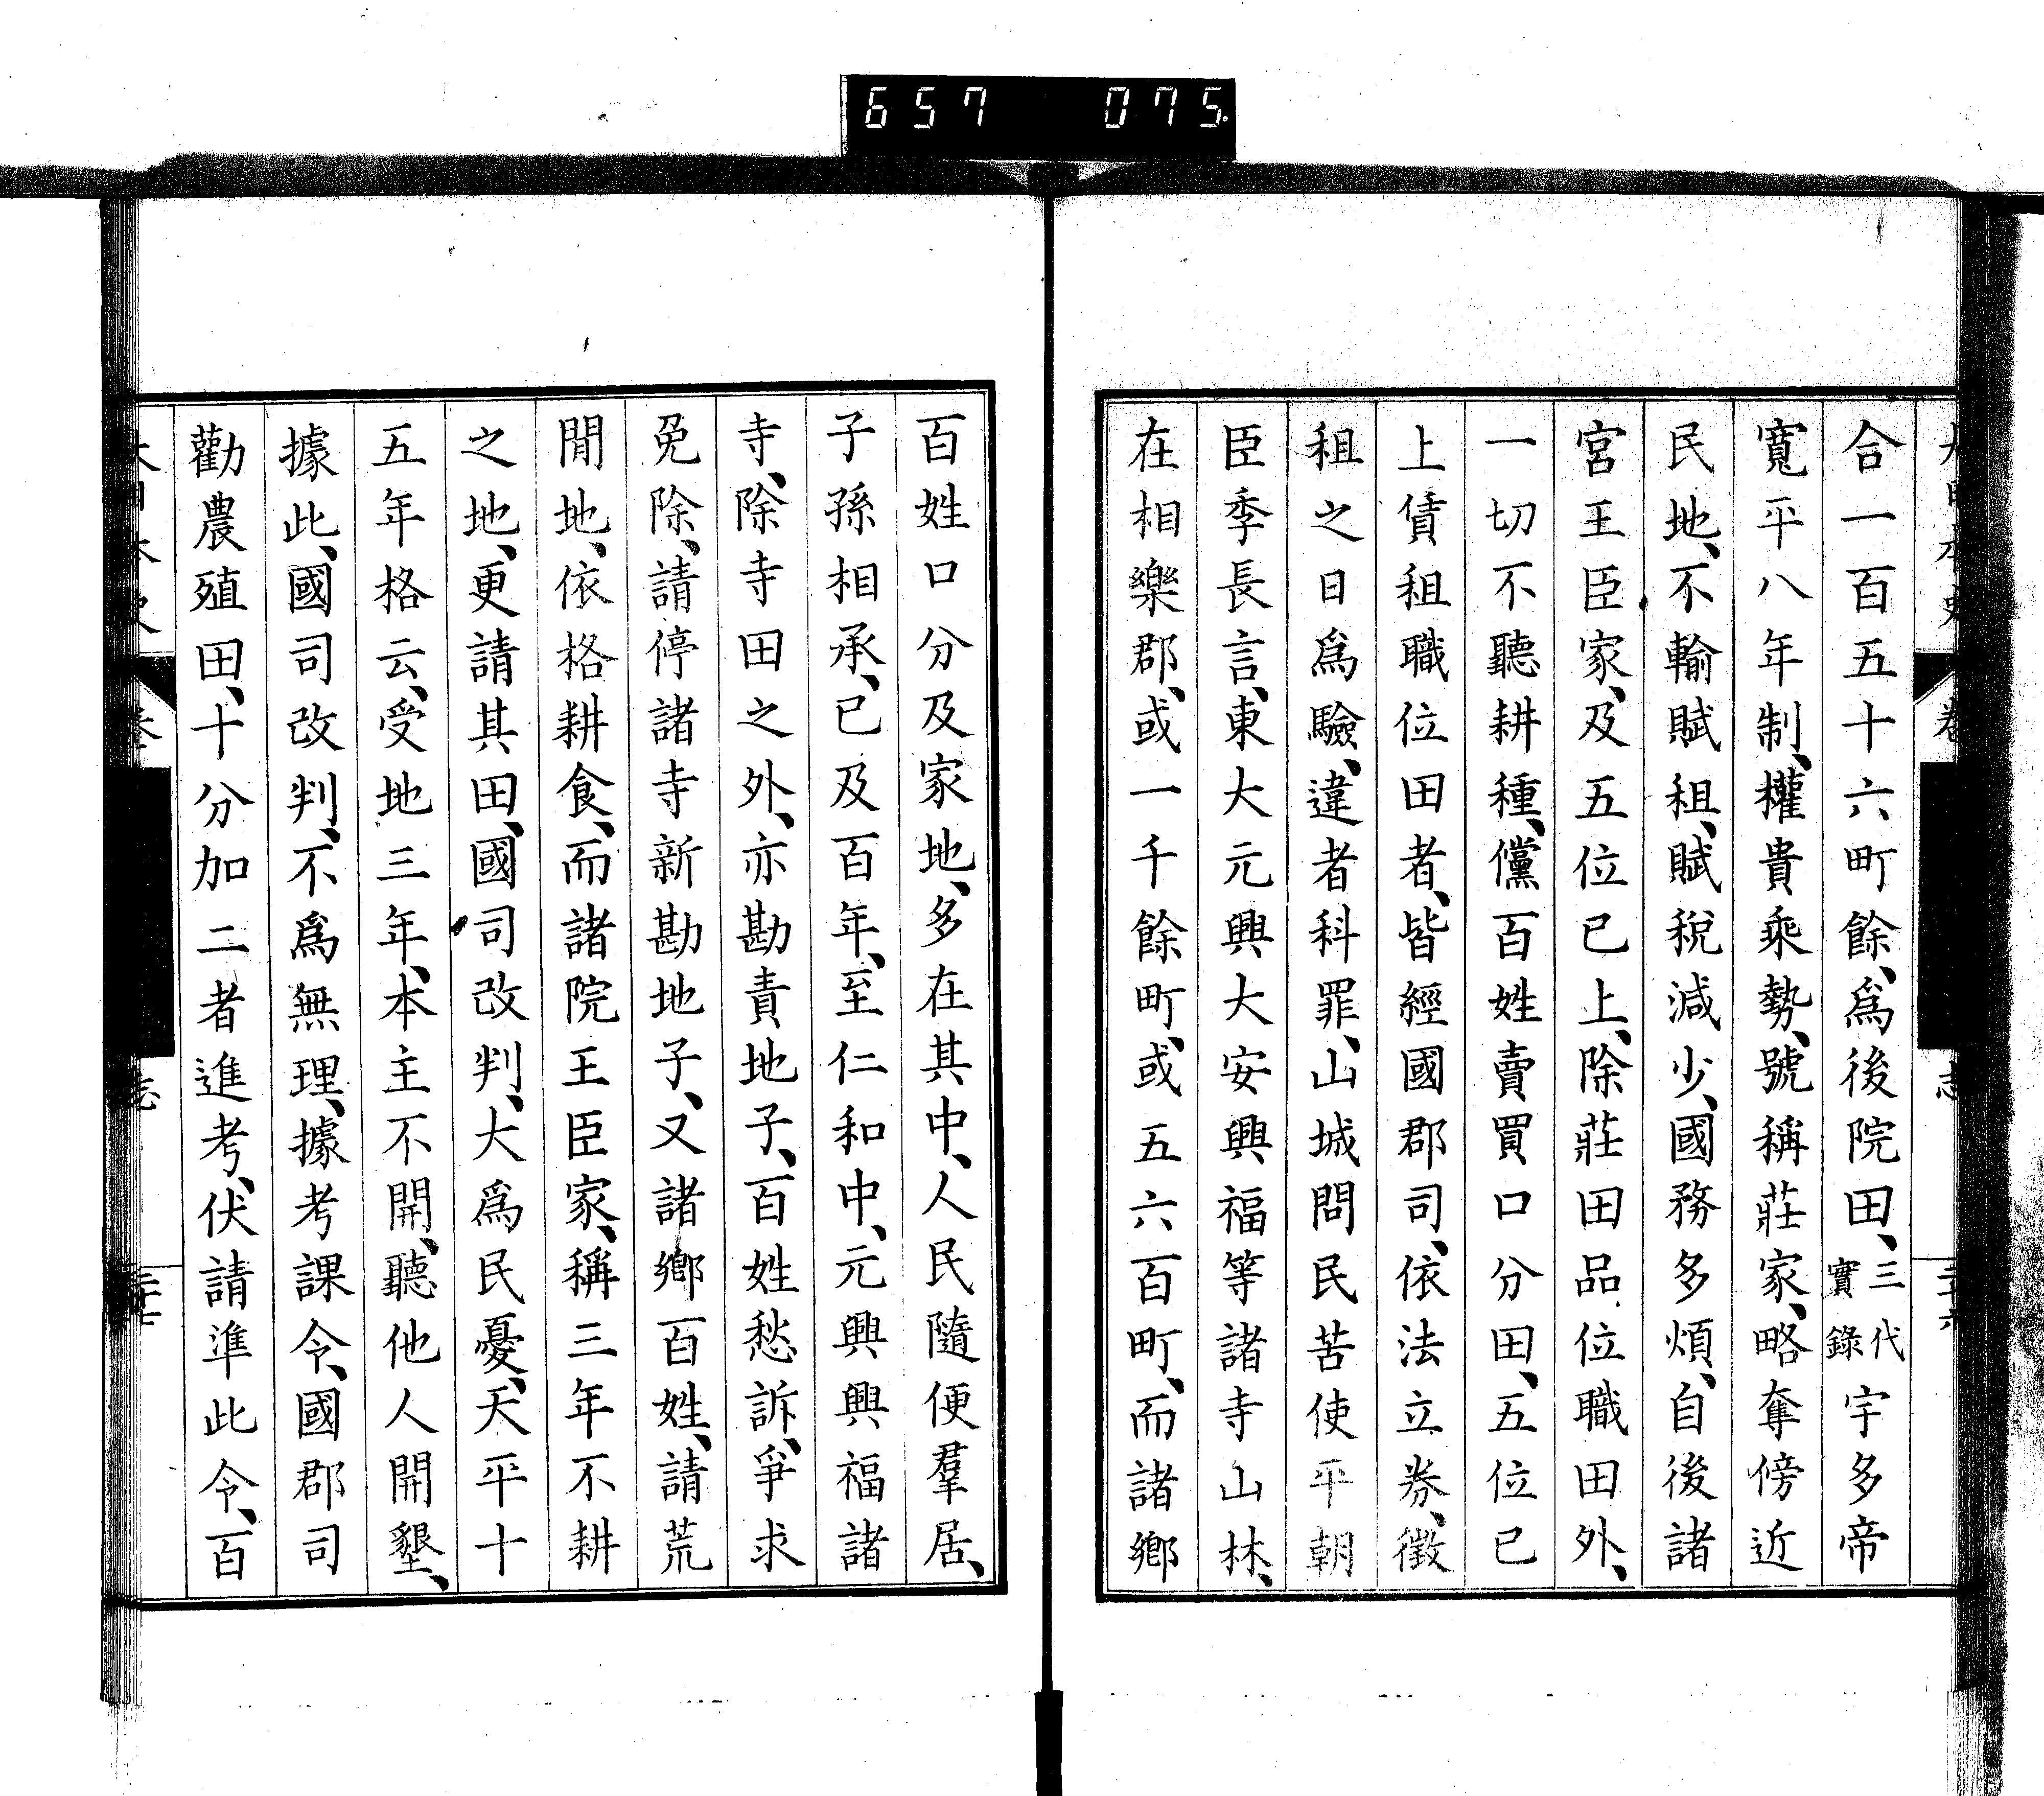 657 075
合一百五十六町餘、爲後院田、三代實錄宇多帝
寬平八年制、權貴乘勢、號稱莊家、略奪傍近
民地、不輸賦租、賦稅減少、國務多煩、自後諸
宮王臣家、及五位已上、除莊田品位職田外、
一切不聽耕種、儻百姓賣買口分田、五位已
上賃租職位田者、皆經國郡司、依法立券、徵
租之日爲驗、違者科罪、山城問民苦使平朝
臣季長言、東大元興大安興福等諸寺山林、
在相樂郡、或一千餘町、或五六百町、而諸鄉
百姓口分及家地、多在其中、人民隨便羣居、
子孫相承、已及百年、至仁和中、元興興福諸
寺、除寺田之外、亦勘責地子、百姓愁訴、爭求
免除、請停諸寺新勘地子、又諸鄉百姓、請荒
閒地、依格耕食、而諸院王臣家、稱三年不耕
之地、更請其田、國司改判、大爲民憂、天平十
五年格云、受地三年、本主不開、聽他人開墾、
據此、國司改判、不爲無理、據考課令、國郡司
勸農殖田、十分加二者進考、伏請準此令、百